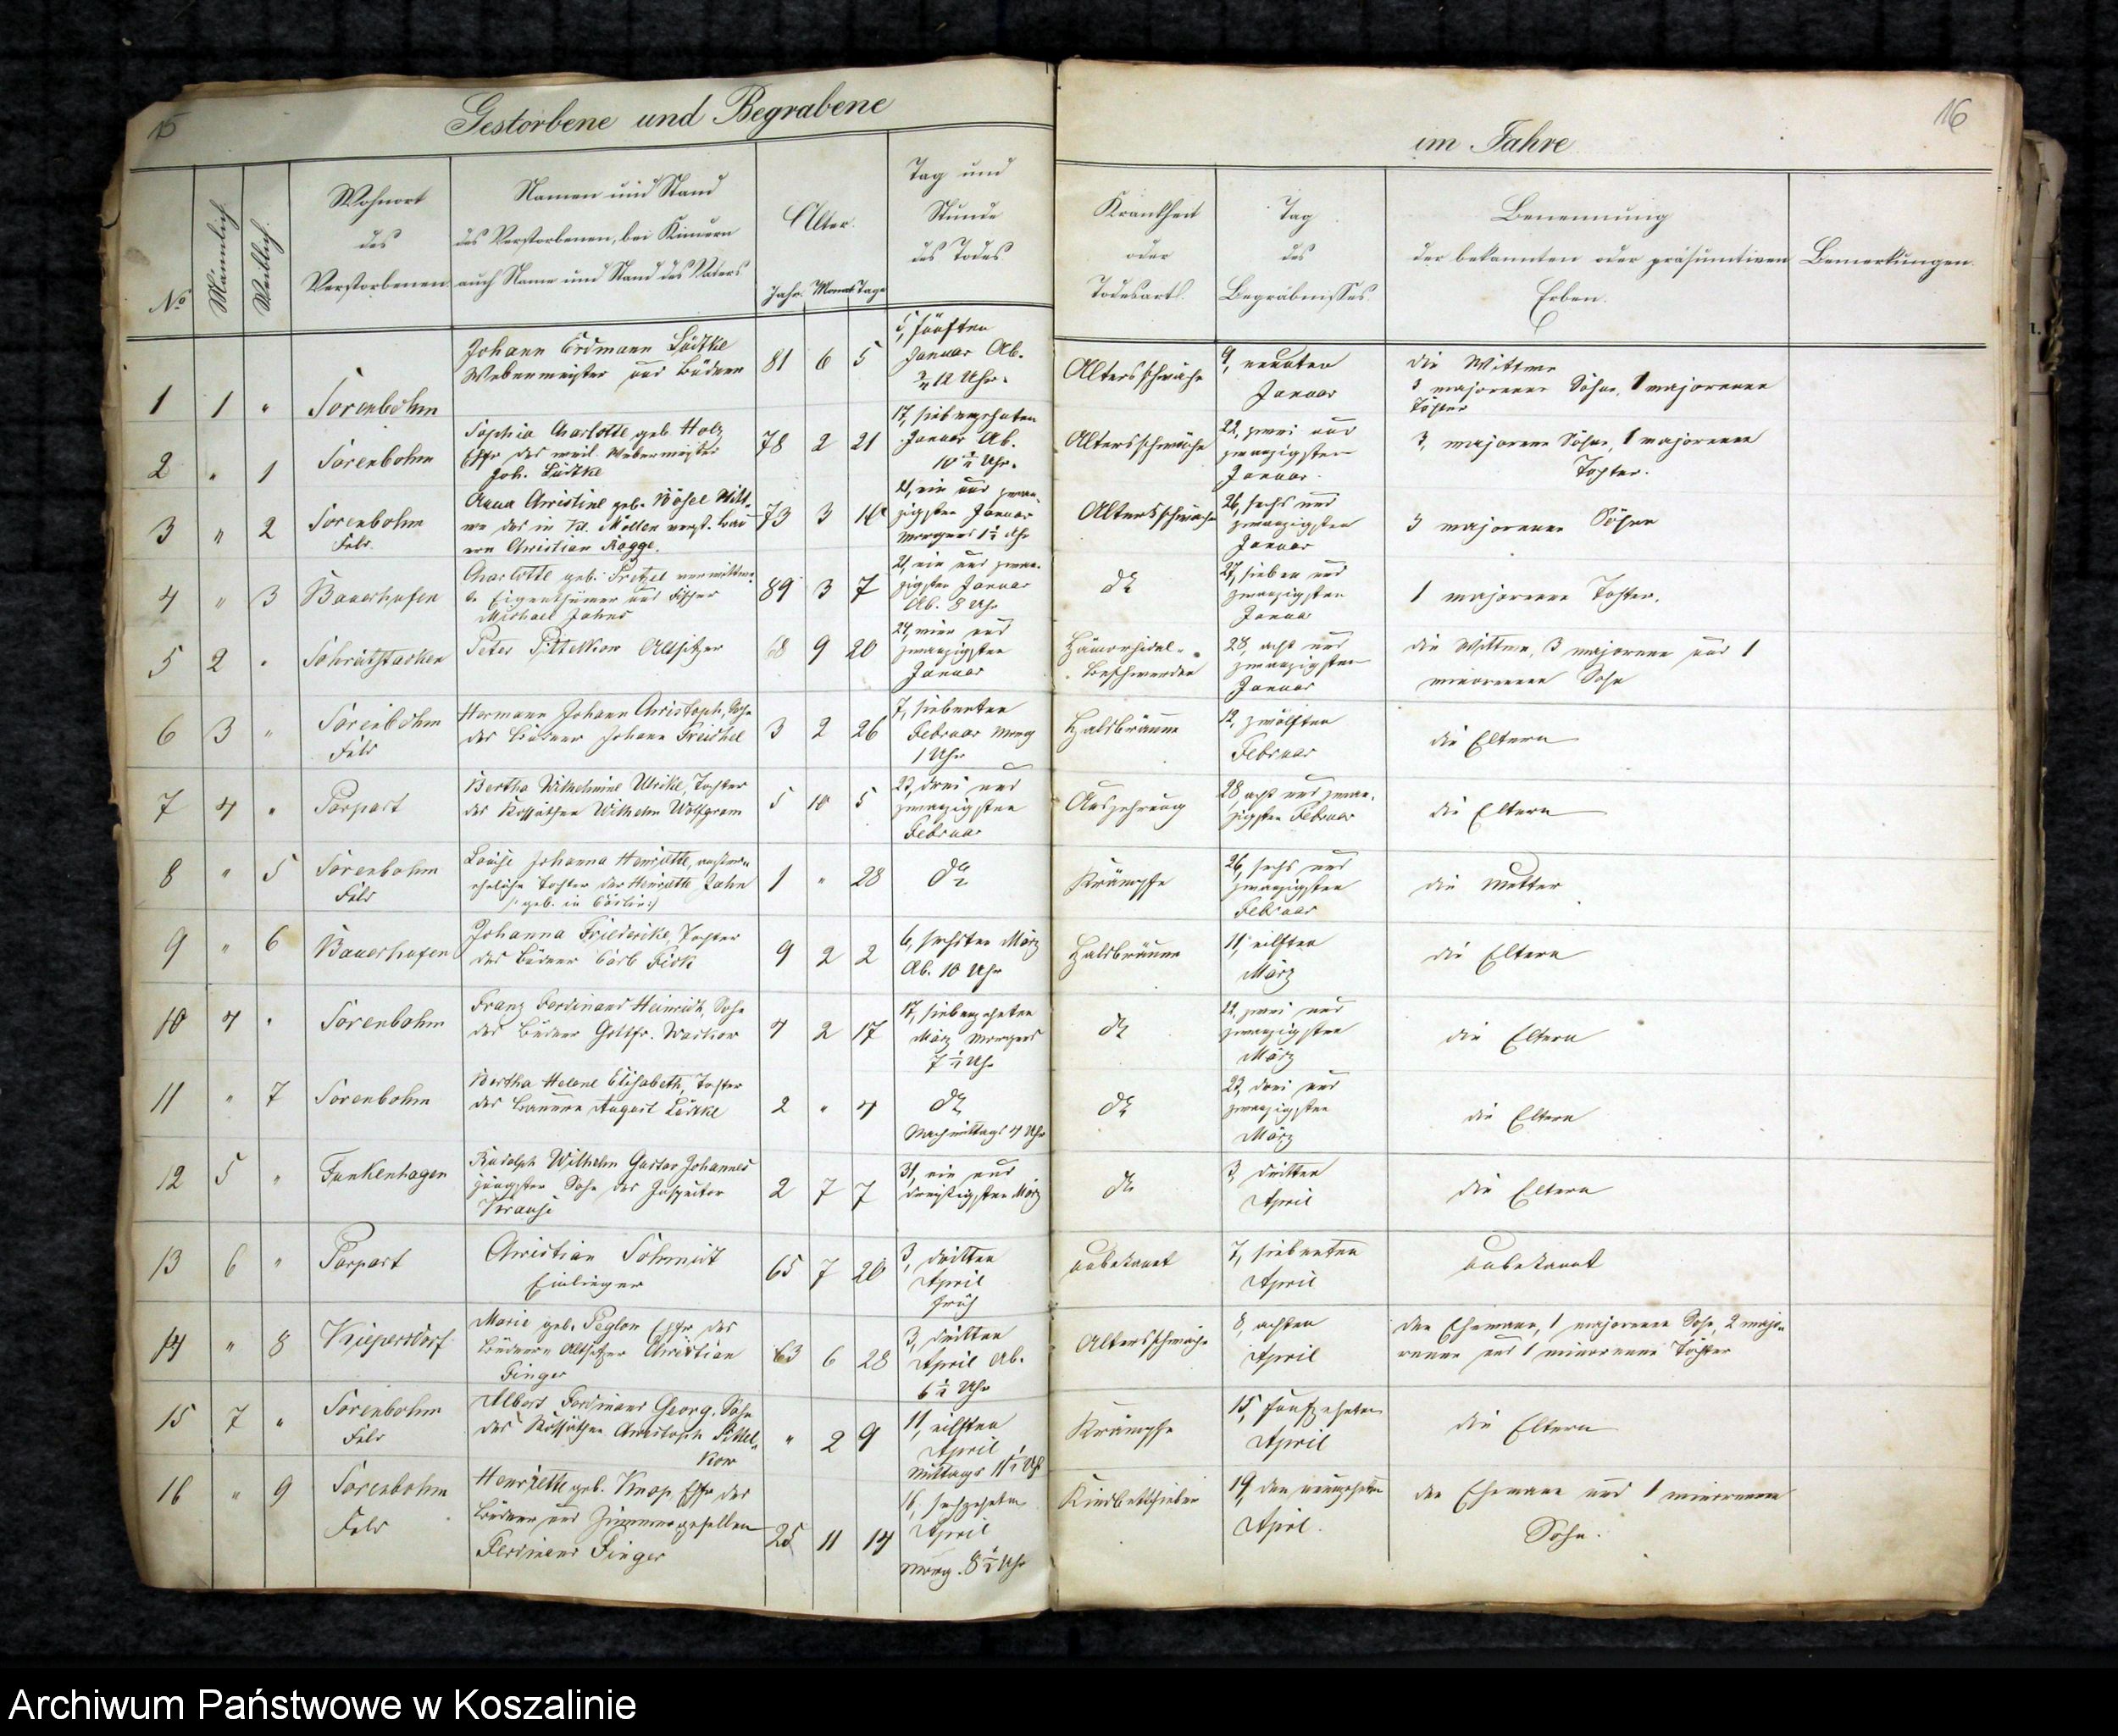 15
Gestorbene und Begrabene
No
Männlich.
Weiblich.
Wohnort
des
Verstorbenen
Namen und Stand
des Verstorbenen, bei Kindern
auch Name und Stand des Vaters
Alter.
Jahr. Monat Tage
Tag und
Stunde
des Todes
1 1 " Sorenbohm
Johann Erdmann Lüdtke
Webermeister und Büdner
81 6 5
5, fünften
Januar Ab.
12 Uhr.
2 " 1 Sorenbohm
Sophia Charlotte geb Holz
Ehfr des weil. Webermeister
Joh. Lüdtke
78 2 21
17, siebenzehnten
Januar Ab.
10 ½ Uhr.
3 " 2 Sorenbohm
Feld.
Anna Christine geb. Witt-
we des in Kl. Möllen verst. Bau
ern Christian Ragge.
73 3
21, ein und zwan-
zigsten Januar
Morgens 1 ½ Uhr
4 " 3 Bauerhufen
Charlotte geb. verwittwe-
te Eigenthümer und Fischer
Michael Jahns
89 3 7
21, ein und zwan-
zigsten Januar
Ab. 8 Uhr
5 2 " Schratstacken
Peter Pittelkow Altsitzer
68 9 20
24, vier und
zwanzigsten
Januar
6 3 " Sorenbohm
Feld
Hermann Johann Christoph, Sohn
des Büdner Johann
3 2 26
7, siebenten
Februar Morg
1 Uhr
7 4 " Porpart
Bertha Wilhelmine Ulrike, Tochter
des Kossäthen Wilhelm Wolfgram
5 10 5
23, drei und
zwanzigsten
Februar
8 " 5 Sorenbohm
Feld
Louise Johanna Henriette, außer-
eheliche Tochter der Henriette Jahn
(: geb. in Cörlin:)
1 " 28
do
9 " 6 Bauerhufen
Johanna Friederike, Tochter
des Büdner Carl Fick
9 2 2
6, sechsten März
Ab. 10 Uhr
10 4 " Sorenbohm
Franz Ferdinand Heinrich, Sohn
des Büdner Gottfr.
4 2 17
17, siebenzehnten
März Morgens
7 ½ Uhr
11 " 7 Sorenbohm
Bertha Helene Elisabeth, Tochter
des Bauern August Lüdtke
2 " 4
do
Nachmittags 4 Uhr
12 5 " Funkenhagen
Rudolph Wilhelm Gustav Johannes
jüngster Sohn des Inspector
Krause
2 7 7
31, ein und
dreißigsten März
13 6 " Porpart
Christian Schmidt
Einlieger
65 7 20
3, dritten
April
früh
14 " 8 Kiepersdorf
Marie geb. Peglow Ehfr des
Büdner Altsitzer Christian
Finger
63 6 28
3, dritten
April Ab.
6 ½ Uhr
15 7 " Sorenbohm
Feld
Albert Ferdinand Georg, Sohn
des Kossäthen Christoph Pittel-
kow
" 2 9
11, eilften
April
Mittags 11 ½ Uhr
16 " 9 Sorenbohm
Feld
Henriette geb. Knop Ehfr des
Büdner und Zimmergesellen
Ferdinand Finger
25 11 14
16, sechzehnten
April
Morg. 8 ½ Uhr
16
im Jahre
Krankheit
oder
Todesart.
Tag
des
Begräbnisses.
Benennung
der bekannten oder präsumtiven
Erben.
Bemerkungen.
Altersschwäche
9, neunten
Januar
die Wittwe
3 majorenne Söhne, 1 majorenne
Tochter
Altersschwäche
22, zwei und
zwanzigsten
Januar.
3, majorenne Söhne, 1 majorenne
Tochter.
Altersschwäche
26, sechs und
zwanzigsten
Januar
3 majorenne Söhne
do
27, sieben und
zwanzigsten
Januar
1 majorenne Tochter.
Hämorhidal-
beschwerden
28, acht und
zwanzigsten
Januar
die Wittwe, 3 majorenne und 1
minorenne Sohn
Halsbräune
12, zwölften
Februar
die Eltern
Auszehrung
28 acht und zwan-
zigsten Februar
die Eltern
Krämpfe
26, sechs und
zwanzigsten
Februar
die Mutter
Halsbräune
11, eilften
März
die Eltern
do
22, zwei und
zwanzigsten
März
die Eltern
do
23, drei und
zwanzigsten
März
die Eltern
do
3, dritten
April
die Eltern
unbekannt
7, siebenten
April
unbekannt
Altersschwäche
8, achten
April
der Ehemann, 1 majorenne Sohn, 2 majo-
renne und 1 minorenne Töchter
Krämpfe
15, funfzehnten
April
die Eltern
Kindbettfieber
19, den neunzehnten
April.
der Ehemann und 1 minorenne
Sohn.
Archiwum Państwowe w Koszalinie